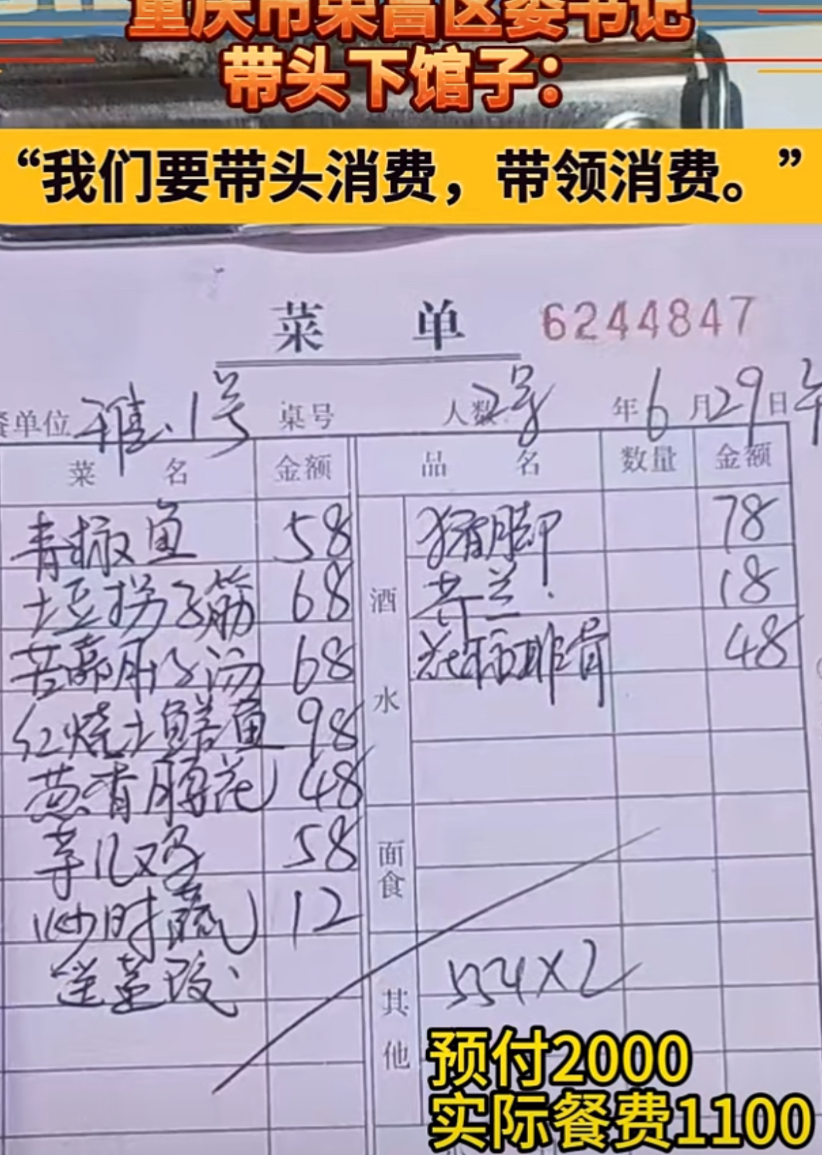 重庆市荣昌区委书记
带头下馆子：
“我们要带头消费，带领消费。”
菜 单 6244847
餐单位 雅1号 桌号 人数 2号 年6月29日
菜 名 金额 品 名 数量 金额
青椒鱼 58 猪脚 78
土豆拐子筋 68 酒 18
苦藠肚子汤 68 排骨 48
红烧土鳝鱼 98 水
葱香脑花 48
芋儿鸡 58 面食
炒时蔬 12
其他 554×2
预付2000
实际餐费1100